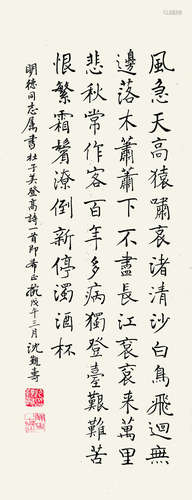 風急天高猿嘯哀渚清沙白鳥飛迴無
邊落木蕭蕭下不盡長江衮衮来萬里
悲秋常作客百年多病獨登臺艱難苦
恨繁霜鬢潦倒新停濁酒杯
明德同志属書杜子美登高詩一首即希正教戊午三月沈覲壽